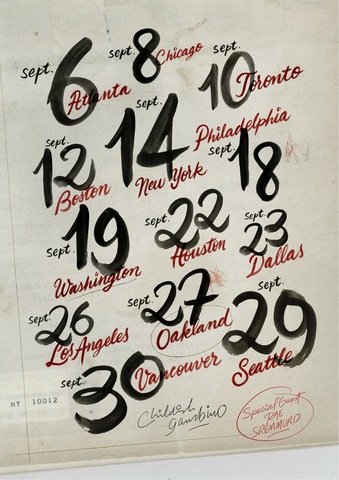 sept. 6 Atlanta
sept. 8 Chicago
sept. 10 Toronto
sept. 12 Boston
sept. 14 New York
sept. 18 Philadelphia
sept. 19 Washington
sept. 22 Houston
sept. 23 Dallas
sept. 26 Los Angeles
sept. 27 Oakland
sept. 29 Seattle
sept. 30 Vancouver
NY 10012
Childish
gambino
Special Guest
RAE
SREMMURD